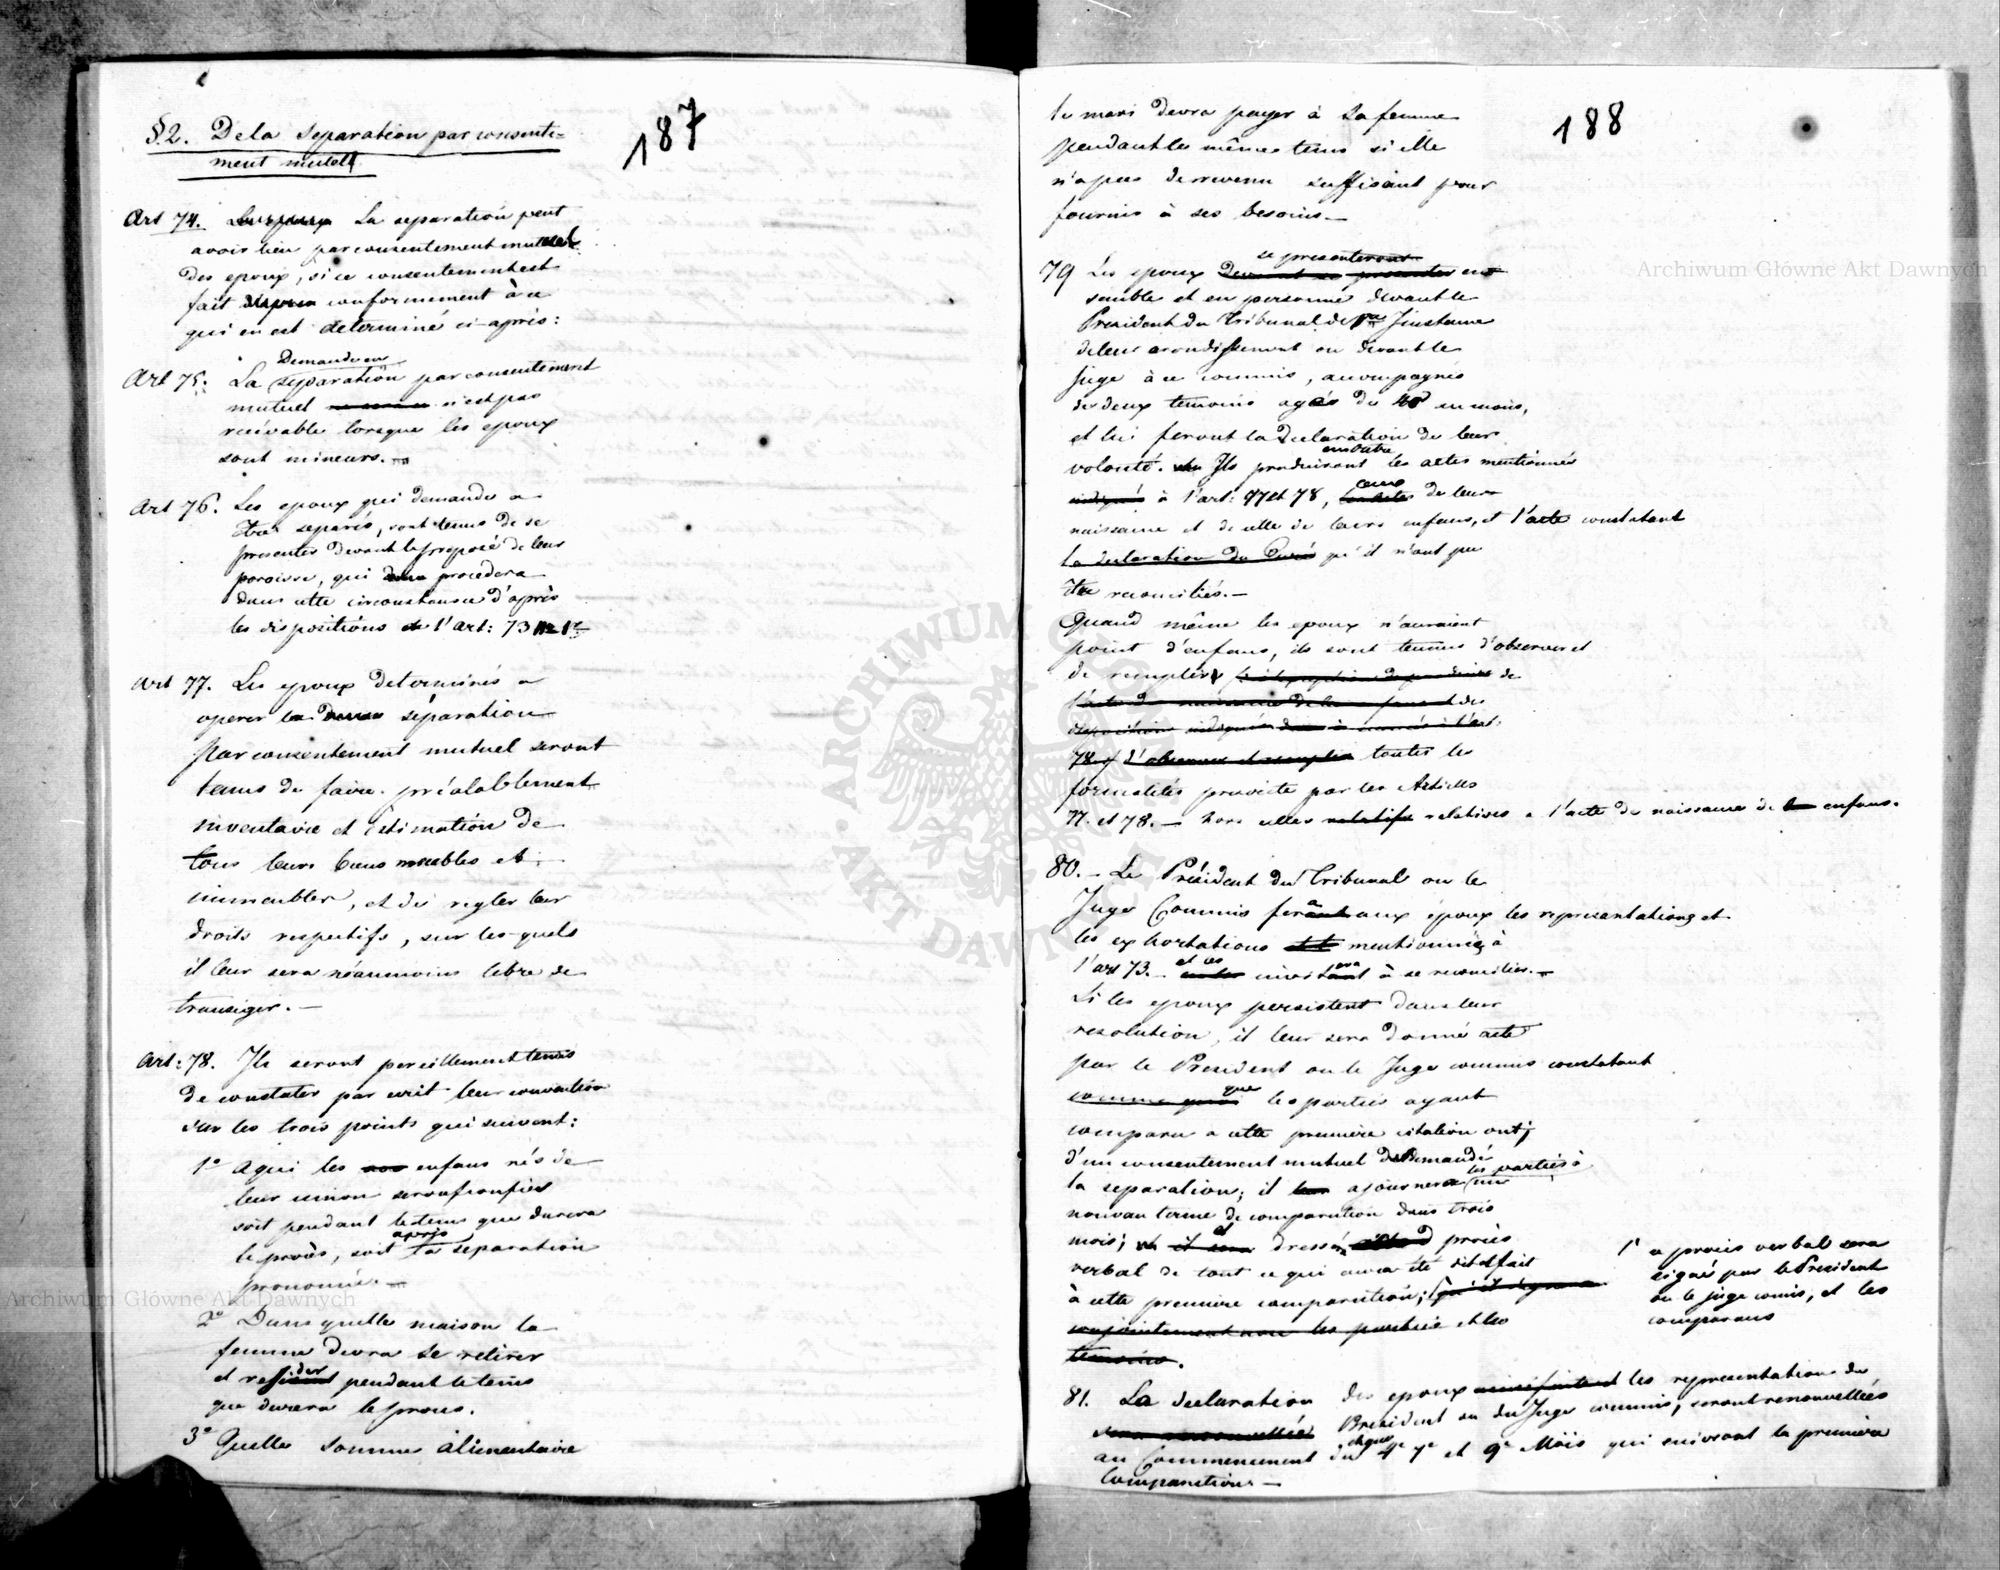 187
§2. De la separation par consente=
ment mutel
Art 74. Les epoux La separation peut
avoir lieu par consentement mutuel
des epoux, si ce consentement est
fait conformement à ce
qui en est determiné ci-après:
Demande en
Art 75. La separation par consentement
mutuel n'est pas
recevable lorsque les epoux
sont mineurs.
Art 76. Les epoux qui demande a
être separés, sont tenus de se
presenter devant le preposé de leur
paroisse, qui procedera
dans cette circonstance d'après
les dispositions de l'Art: 73 No 1
Art 77. Les epoux determinés a
operer la separation
par consentement mutuel seront
tenus de faire préalablement
inventaire et estimation de
tous leurs biens meubles et
immeubles, et de regler leur
droits respectifs, sur les quels
il leur sera néanmoins libre de
transiger. —
Art: 78. Ils seront pareillement tenus
de constater par ecrit leur convention
sur les trois points qui suivent:
1° a qui les enfans nés de
leur union seront confiés
soit pendant le tems que durera
après
le procès, soit la separation
prononcée. —
2° Dans quelle maison la
femme devra se retirer
et resider pendant le tems
que durera le procès.
3° Quelle somme alimentaire
188
le mari devra payer à sa femme
pendant les même tems si elle
n'a pas de revenu suffisant pour
fournir à ses besoins. —
se presenteront
79 Les epoux devront se presenter en
semble et en personne devant le
President du Tribunal de 1re Jinstance
de leur arondissement ou devant le
Juge à ce commis, accompagnés
de deux temoins agés de 40 en moins,
et lui feront la Declaration de leur
en outre
volonté. Ils produiront les actes mentionnés
à l'art: 77 et 78, ceux de leur
naissance et de celle de leurs enfans, et l'acte constatant
la declaration du Curé qu'il n'ont pu
être reconciliés. —
Quand même les epoux n'auraient
point d'enfans, ils sont tenus d'observer et
de remplir de
l'acte de naissance de leurs enfans des
78 d'observer et remplir toutes les
formalités prescrite par les Articles
77. et 78. — hors celles relatifs relatives a l'acte de naissance de enfans.
80. — Le Président du Tribunal ou le
Juge Commis fera aux époux les representations et
les exhortations mentionnés à
et les
l'art 73. — invitera à se reconcilier. —
Si les epoux persistent dans leur
resolution, il leur sera donné acte
par le President ou le Juge commis constatant
que
comme quoi les parties ayant
comparu a cette première citation ont
d'un consentement mutuel demandé
les parties à
la separation; il ajournera un
nouveau terme de comparution dans trois
mois; et il sera dressé procès
verbal de tout ce qui aura été dit et fait
à cette première comparution;
conjointement avec les parties et les
temoins.
1° ce procès verbal sera
signé par le President
ou le juge comis, et les
comparans
81. La declaration des epoux les representation du
sera renouvellée President ou du Juge commis, seront renouvellées
au Commencement du 4e 7e et 9e Mois qui suivront la première
Comparution —
Archiwum Główne Akt Dawnych
Archiwum Główne Akt Dawnych
ARCHIWUM GŁÓWNE AKT DAWNYCH